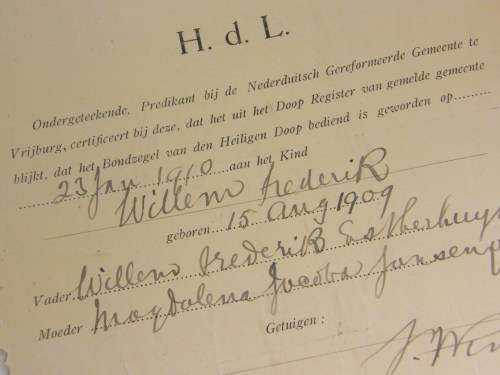 H. d. L.
Ondergeteekende, Predikant bij de Nederduitsch Gereformeerde Gemeente te
Vrijburg, certificeert bij deze, dat het uit het Doop Register van gemelde gemeente
blijkt, dat het Bondzegel van den Heiligen Doop bediend is geworden op
23 Jan 1910 aan het Kind
Willem Frederik
geboren 15 Aug 1909
Vader Willem Frederik Esterhuys
Moeder Magdalena Jacoba Jansen
Getuigen: